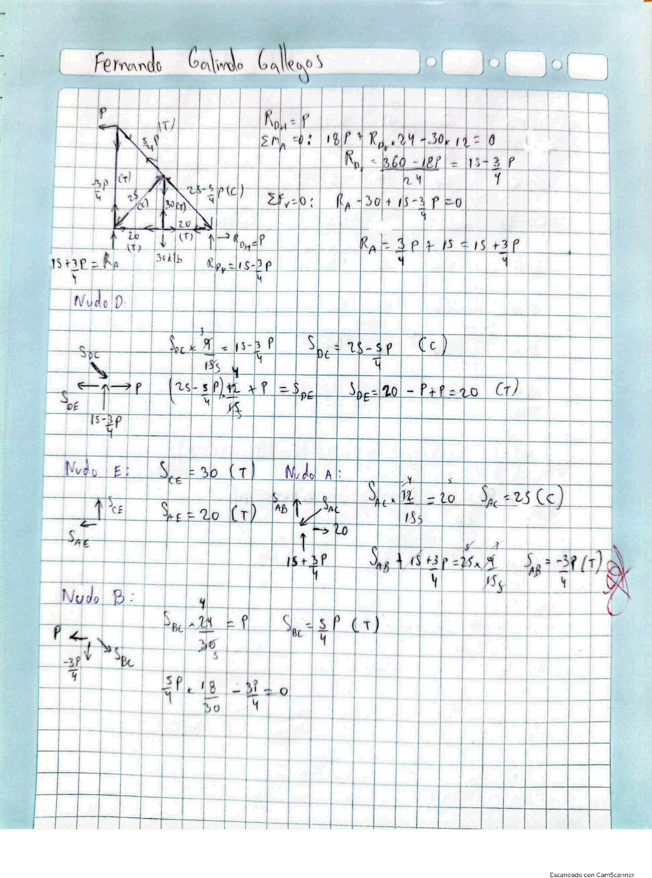 Fernando Galindo Gallegos
P
5/4 P (T)
-3P/4 (T)
25 (T)
30(T)
25-5/4 P (C)
20 (T)
20 (T)
30klb
R_DH=P
15+3P/4 = R_A
R_DV=15-3P/4
R_DH = P
ΣM_A=0: 18P + R_DV×24-30×12=0
R_DV = 360-18P/24 = 15-3/4 P
ΣF_V=0: R_A-30+15-3/4 P=0
R_A=3/4 P+15=15+3/4 P
Nudo D:
S_DC
S_DE
P
15-3P/4
S_DC × 9/15 = 15-3/4 P
3
5
S_DC = 25-5P/4 (C)
(25-5/4 P)×12/15 + P = S_DE
4
5
S_DE=20-P+P=20 (T)
Nudo E:
S_CE = 30 (T)
S_CE
S_AE
S_AE = 20 (T)
Nudo A:
S_AB
S_AC
20
15+3P/4
S_AC × 12/15 = 20
4
5
5
S_AC=25(C)
S_AB + 15+3P/4=25×9/15
5
3
5
S_AB=-3P/4 (T)
Nudo B:
P
-3P/4
S_BC
S_BC × 24/30 = P
4
5
S_BC=5/4 P (T)
5P/4 × 18/30 - 3P/4=0
Escaneado con CamScanner